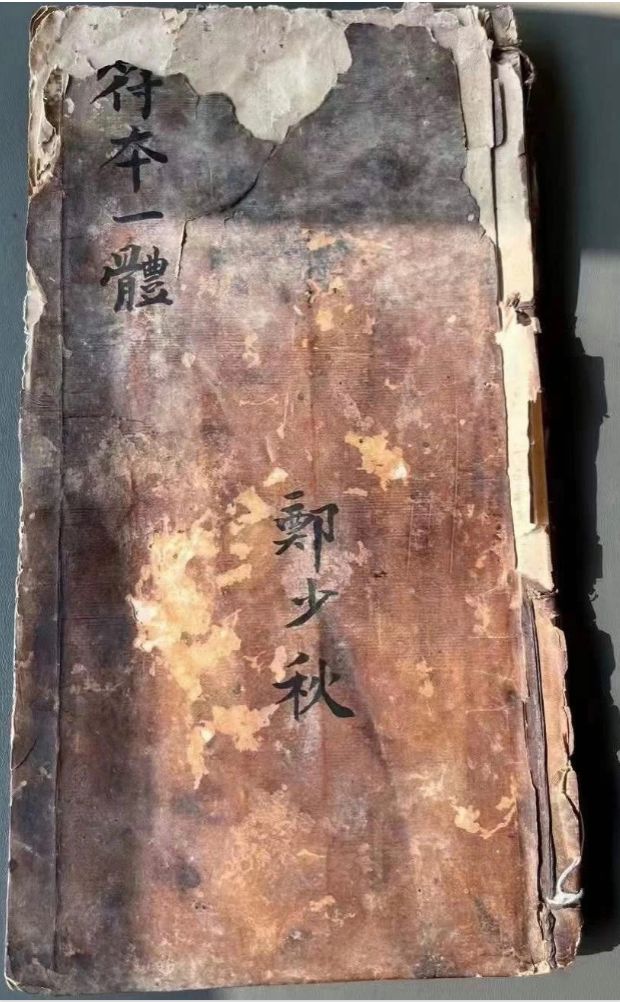 符本一體
鄭少秋